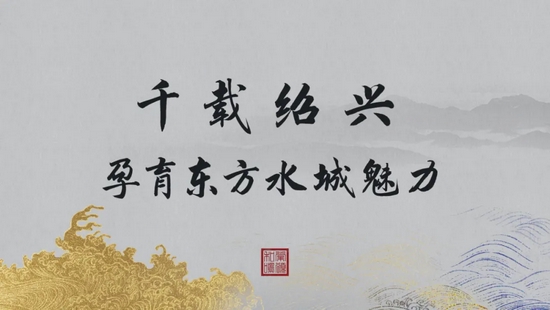 千载绍兴
孕育东方水城魅力